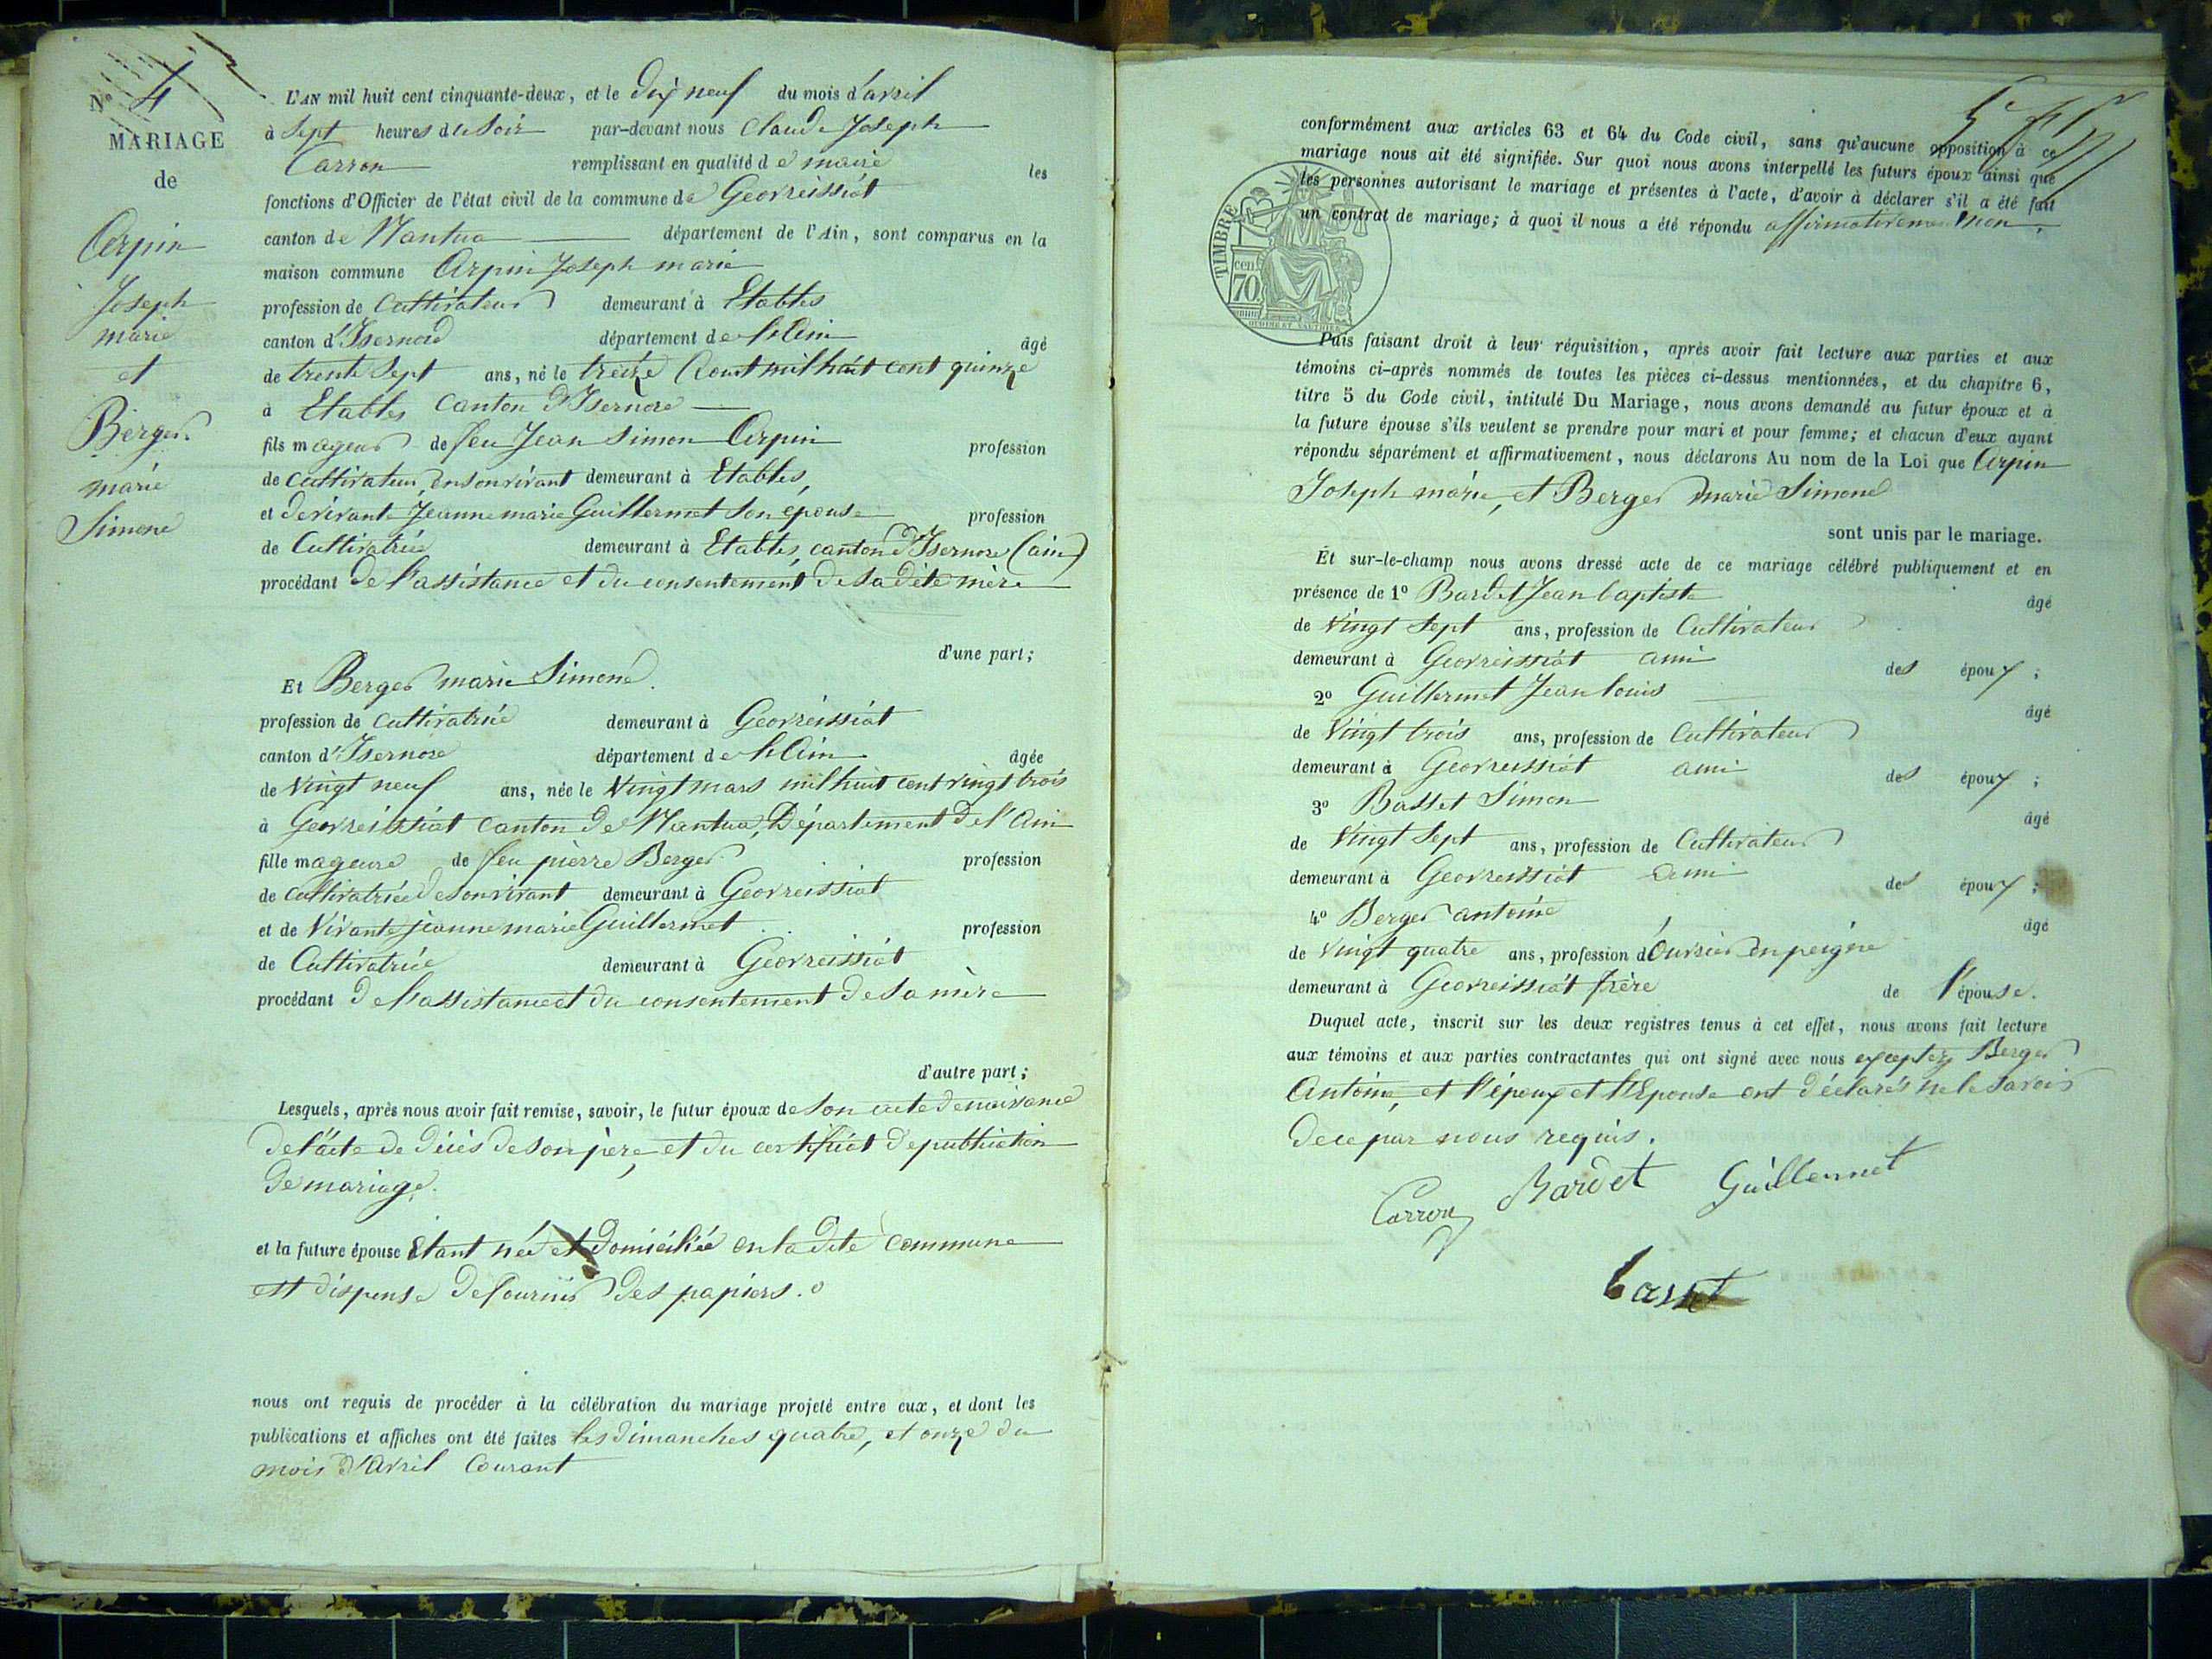 N° 4
MARIAGE
de
Arpin
Joseph
marie
et
Berger
marie
Simone
L'AN mil huit cent cinquante-deux, et le dix neuf du mois d'avril
à Sept heures du Soir par-devant nous Claude Joseph
Carron remplissant en qualité de maire les
fonctions d'Officier de l'état civil de la commune de Geovreissiat
canton de Nantua département de l'Ain, sont comparus en la
maison commune Arpin Joseph marie
profession de Cultivateur demeurant à Etables
canton d'Isernore département de l'Ain âgé
de trente Sept ans, né le treize Aout mil huit cent quinze
à Etables Canton d'Isernore
fils mageur de feu Jean Simon Arpin profession
de Cultivateur, en son vivant demeurant à Etables,
et de vivante Jeanne marie Guillermet Son epouse profession
de Cultivatrice demeurant à Etables, canton d'Isernore (ain)
procédant de l'assistance et du consentement de sa dite mère
d'une part;
Et Berger marie Simone
profession de cultivatrice demeurant à Geovreissiat
canton d'Isernore département de l'Ain âgée
de Vingt neuf ans, née le Vingt mars mil huit cent vingt trois
à Geovreissiat canton de Nantua, Département de l'Ain
fille mageure de feu pierre Berger profession
de cultivatrice de son vivant demeurant à Geovreissiat
et de Vivante jeanne marie Guillermet profession
de Cultivatrice demeurant à Geovreissiat
procédant de l'assistance et du consentement de Sa mère
d'autre part;
Lesquels, après nous avoir fait remise, savoir, le futur époux de Son acte de naissance
de l'acte de décès de son père, et du certificat de publication
de mariage.
et la future épouse Etant née et domiciliée en la dite commune
est dispense de fournir des papiers.
nous ont requis de procéder à la célébration du mariage projeté entre eux, et dont les
publications et affiches ont été faites les dimanches quatre, et onze du
mois d'Avril Courant
conformément aux articles 63 et 64 du Code civil, sans qu'aucune opposition à ce
mariage nous ait été signifiée. Sur quoi nous avons interpellé les futurs époux ainsi que
les personnes autorisant le mariage et présentes à l'acte, d'avoir à déclarer s'il a été fait
un contrat de mariage; à quoi il nous a été répondu
TIMBRE
cen.
70
Puis faisant droit à leur réquisition, après avoir fait lecture aux parties et aux
témoins ci-après nommés de toutes les pièces ci-dessus mentionnées, et du chapitre 6,
titre 5 du Code civil, intitulé Du Mariage, nous avons demandé au futur époux et à
la future épouse s'ils veulent se prendre pour mari et pour femme; et chacun d'eux ayant
répondu séparément et affirmativement, nous déclarons Au nom de la Loi que Arpin
Joseph marie, et Berger Marie Simone
sont unis par le mariage.
Et sur-le-champ nous avons dressé acte de ce mariage célébré publiquement et en
présence de 1° Bardet Jean baptiste âgé
de Vingt Sept ans, profession de Cultivateur
demeurant à Geovreissiat ami des époux;
2° Guillermet Jean louis âgé
de Vingt trois ans, profession de Cultivateur
demeurant à Geovreissiat ami des époux;
3° Basset Simon âgé
de Vingt Sept ans, profession de Cultivateur
demeurant à Geovreissiat ami des époux;
4° Berger antoine âgé
de Vingt quatre ans, profession d'Ouvrier en peigne
demeurant à Geovreissiat frère de l'épouse.
Duquel acte, inscrit sur les deux registres tenus à cet effet, nous avons fait lecture
aux témoins et aux parties contractantes qui ont signé avec nous exceptez Berger
Antoine, et l'époux et l'Epouse ont déclarés ne le savoir
de ce par nous requis.
Carron Bardet Guillermet
basset